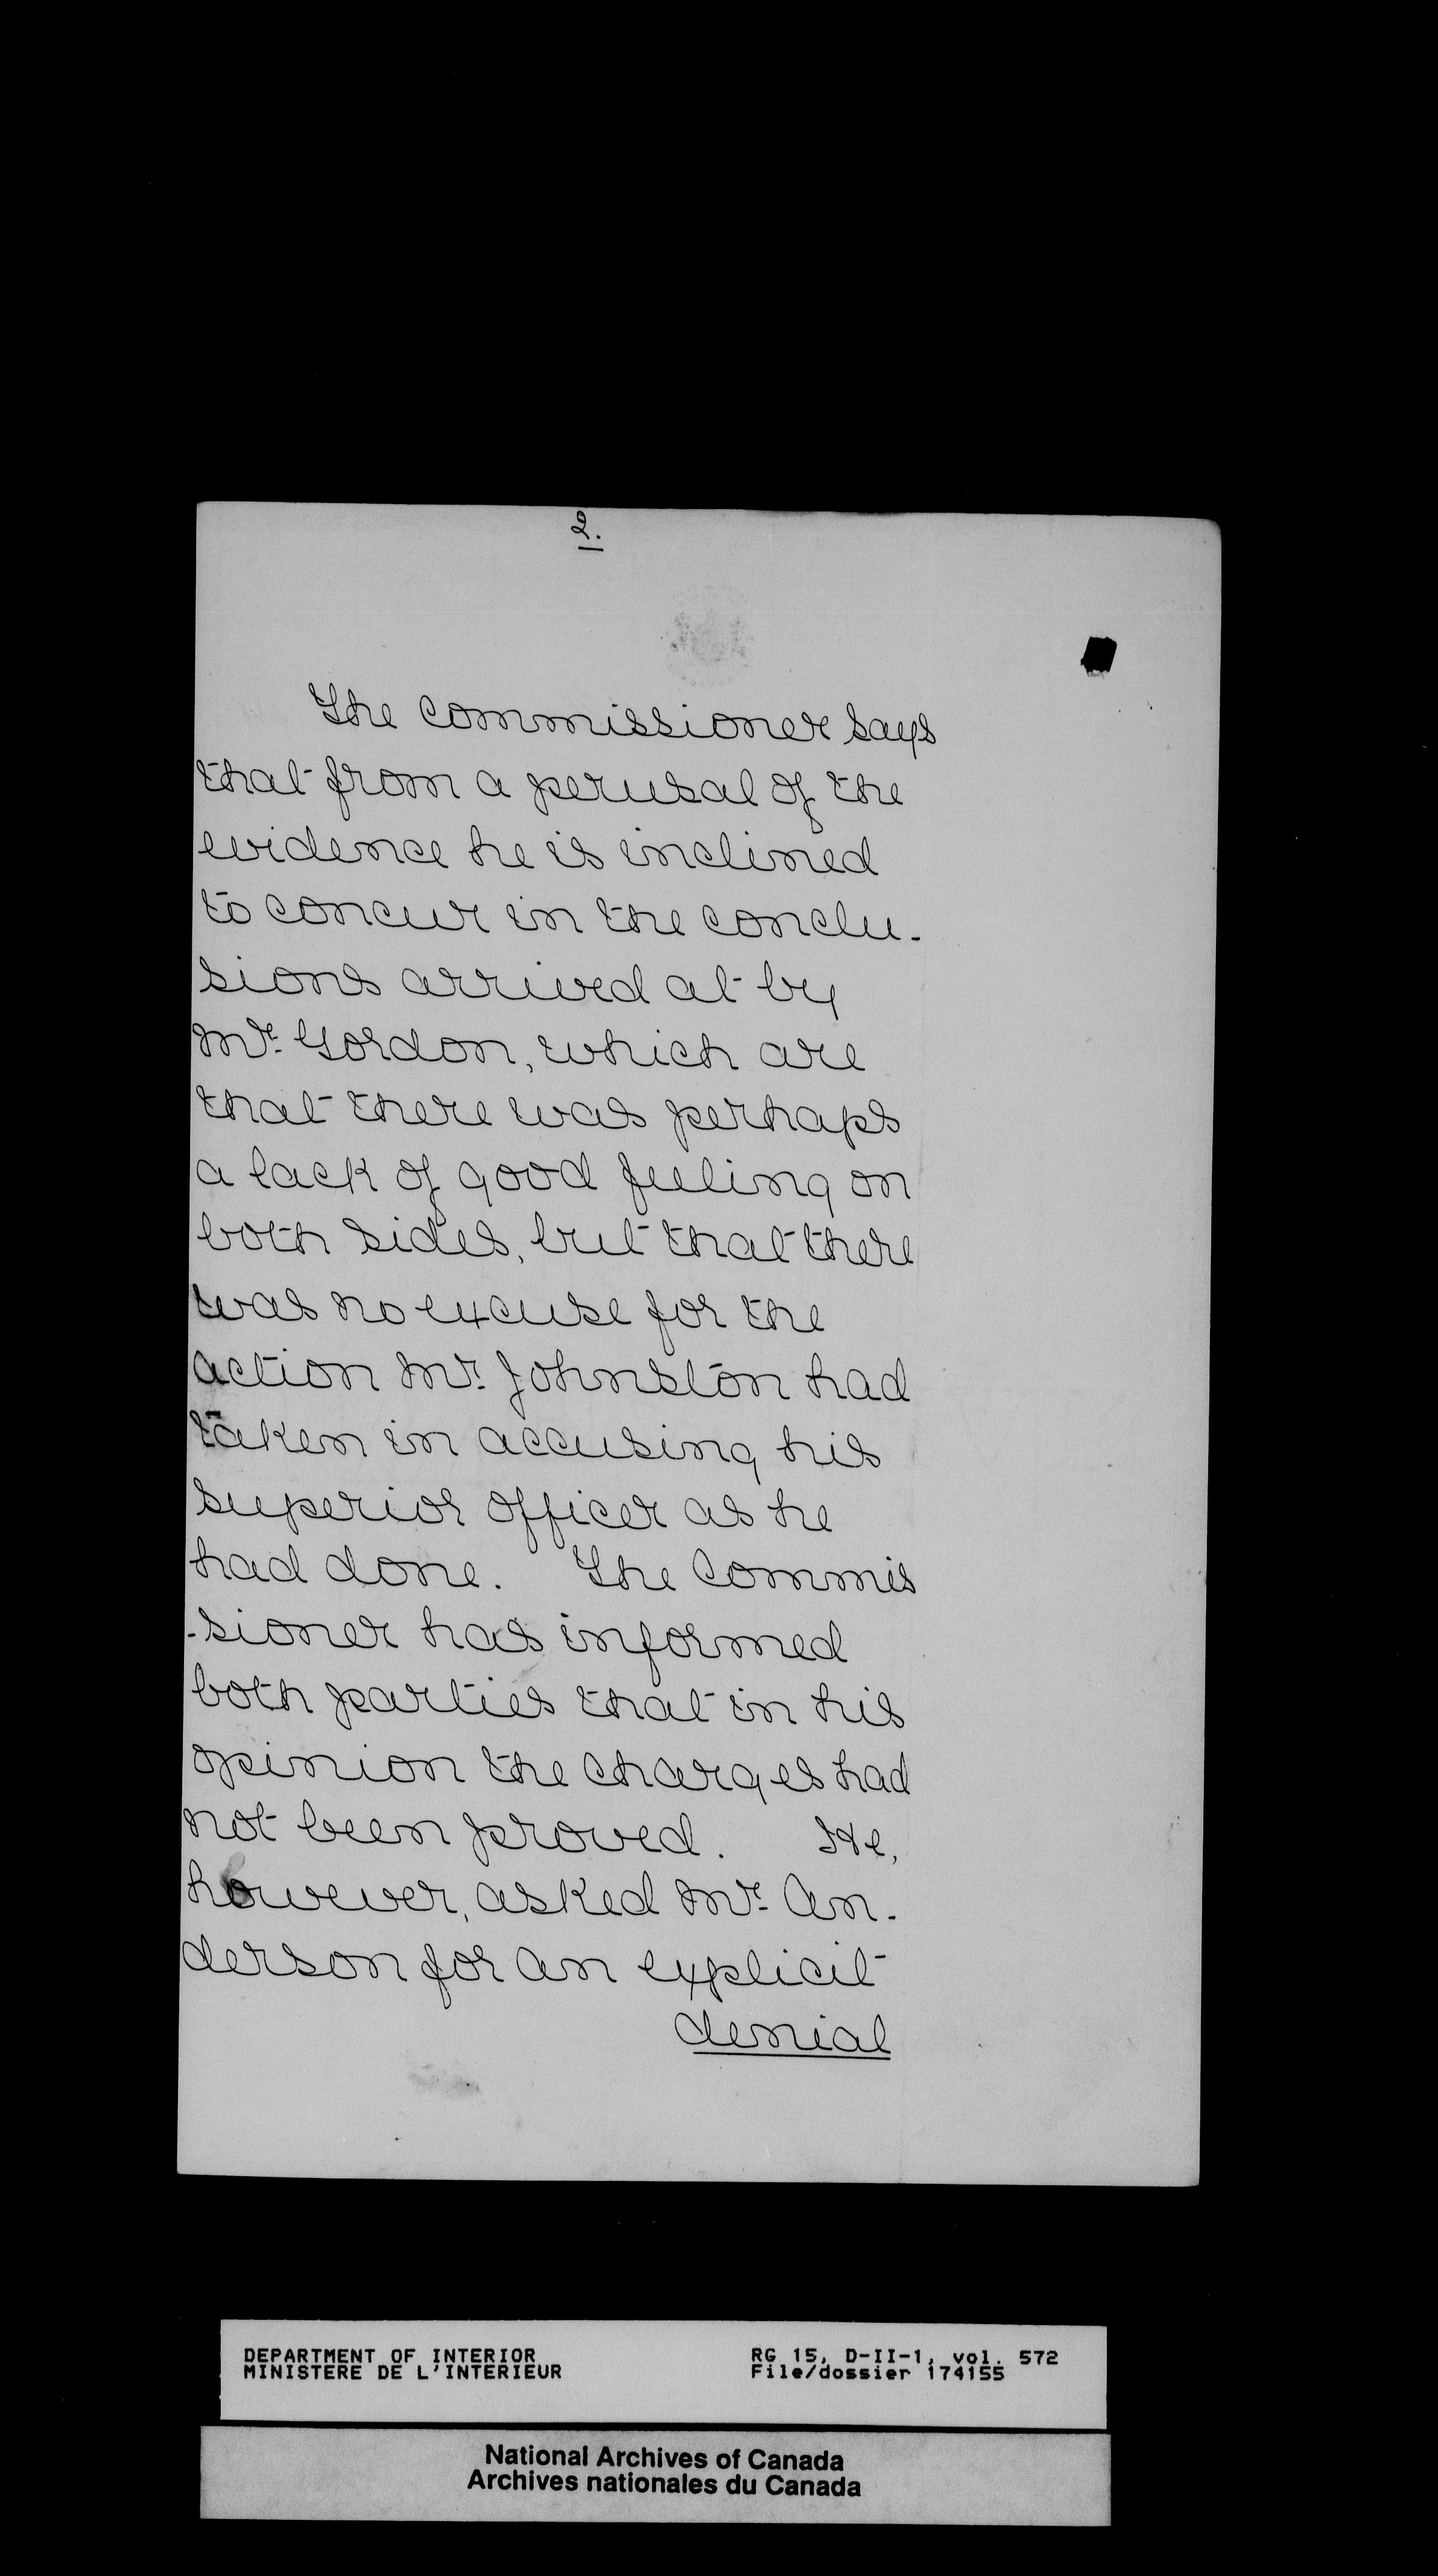 2.
The Commissioner says
that from a perusal of the
evidence he is inclined
to concur in the conclu-
sions arrived at by
Mr. Gordon, which are
that there was perhaps
a lack of good feeling on
both sides, but that there
was no excuse for the
action Mr. Johnston had
taken in accusing his
superior officer as he
had done. The Commis
-sioner has informed
both parties that in his
opinion the charges had
not been proved. He,
however, asked Mr. An-
derson for an explicit
denial
DEPARTMENT OF INTERIOR
MINISTERE DE L'INTERIEUR
RG 15, D-II-1, vol. 572
File/dossier 174155
National Archives of Canada
Archives nationales du Canada